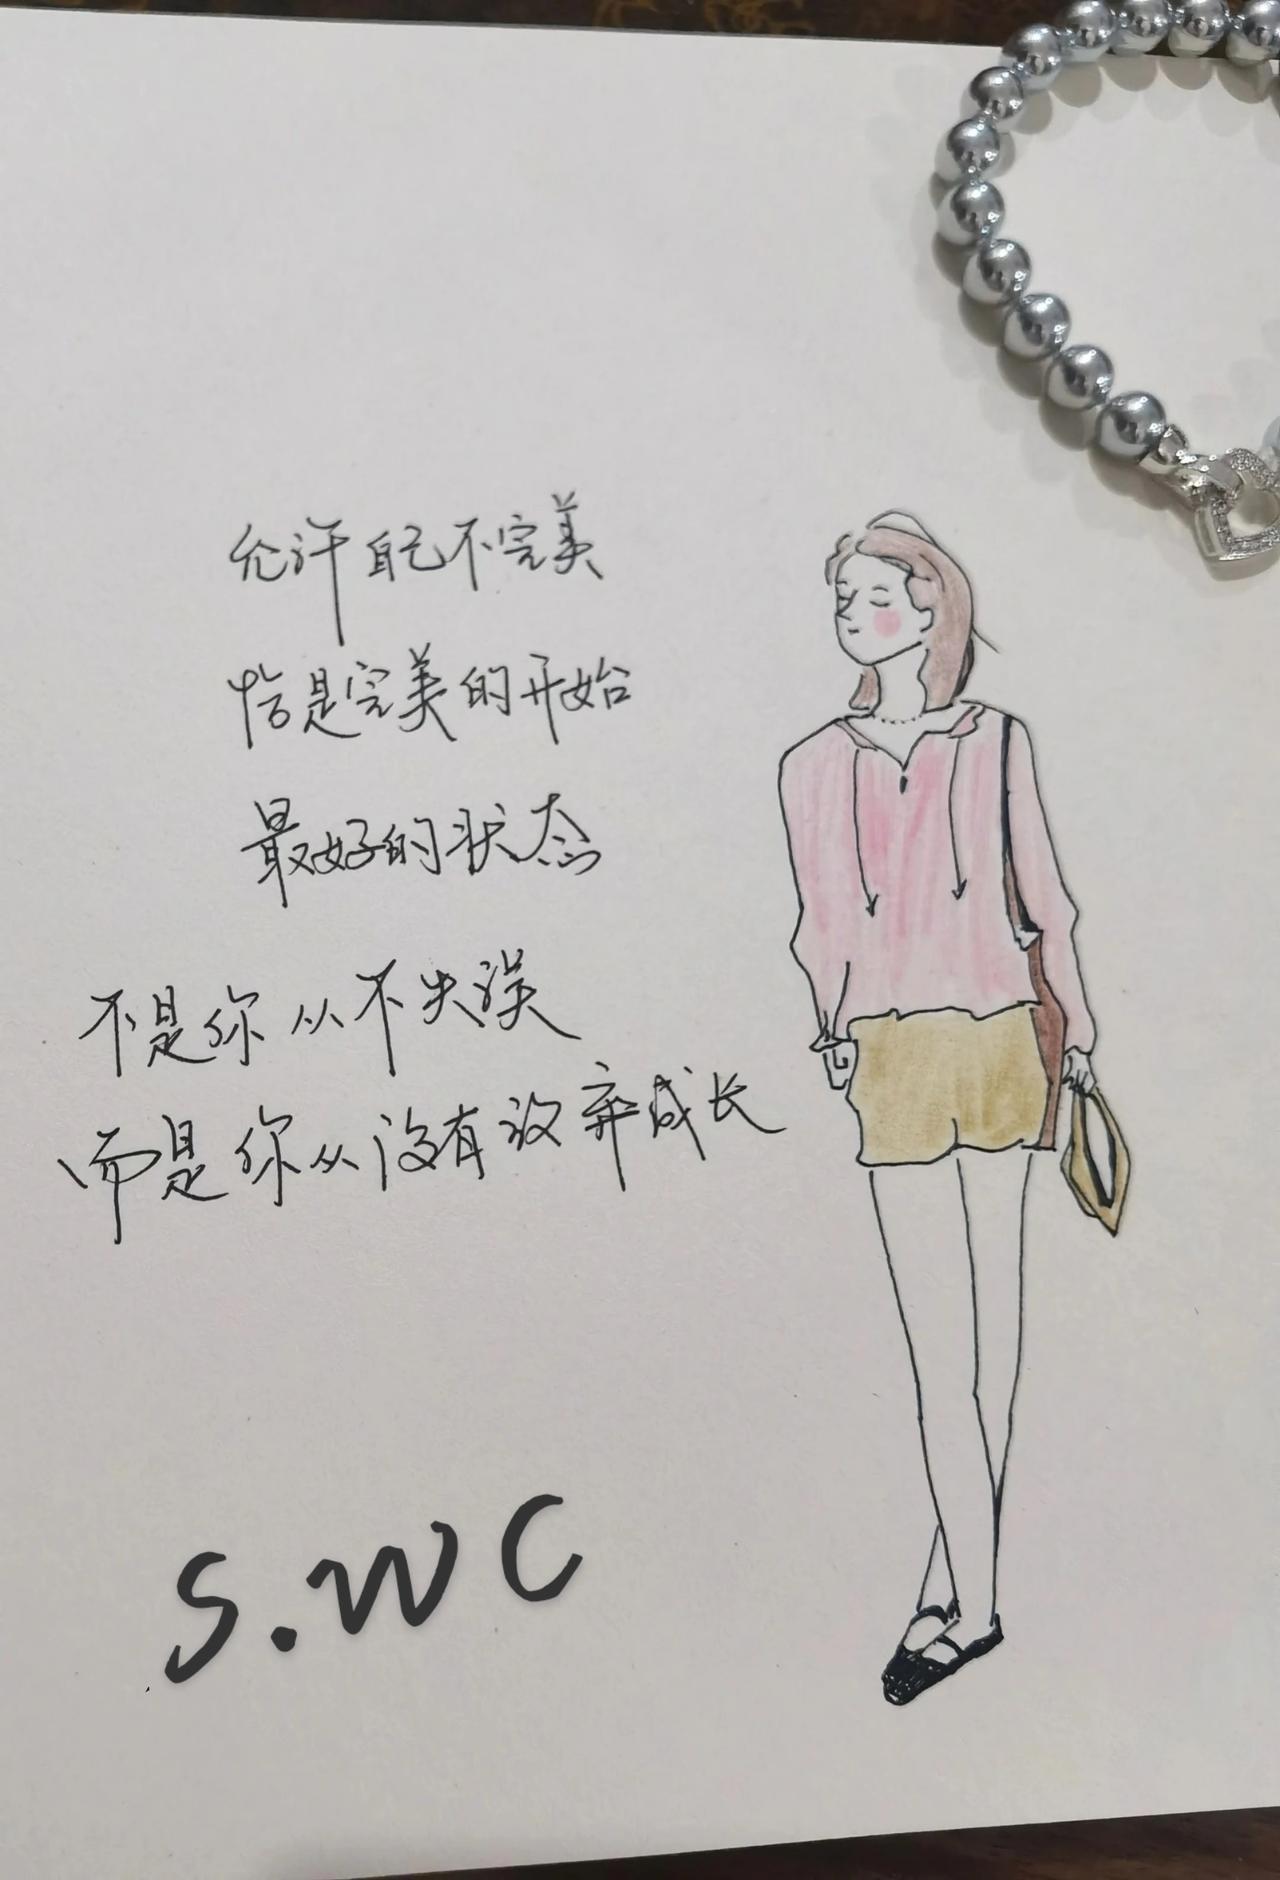 允许自己不完美
恰是完美的开始
最好的状态
不是你从不失误
而是你从没有放弃成长
S.WC